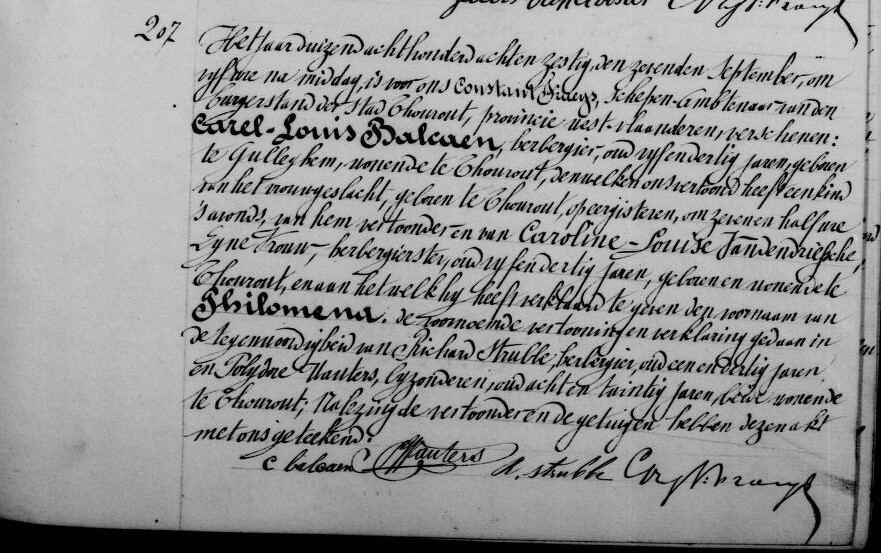 207
Het jaar duizend acht honderd acht en zestig, den zevenden September, om
vyf ure na middag, is voor ons Constant Fraeys, Schepen-Ambtenaar van den
burgerstand der Stad Thourout, provincie west-vlaanderen, verschenen:
Carel-Louis Balcaen, herbergier, oud vyf en dertig jaren, geboren
te Gulleghem, wonende te Thourout, den welken ons vertoond heeft een kind
van het vrouwgeslacht, geboren te Thourout, op eergisteren, om zeven en half ure
's avonds, van hem vertoonder en van Caroline-Louise Vandendriessche,
Zyne Vrouw, herbergierster, oud vyf en dertig jaren, geboren en wonende te
Thourout, en aan het welk hy heeft verklaard te geven den voornaam van
Philomena. de voornoemde vertooning en verklaring gedaan in
de tegenwoordigheid van Richard Strubbe, herbergier, oud een en dertig jaren,
en Polydore Wauters, byzonderen, oud acht en twintig jaren, beide wonende
te Thourout; Na lezing de vertoonder en de getuigen hebben dezen akt
met ons geteekend.
C balcaen Wauters R. strubbe